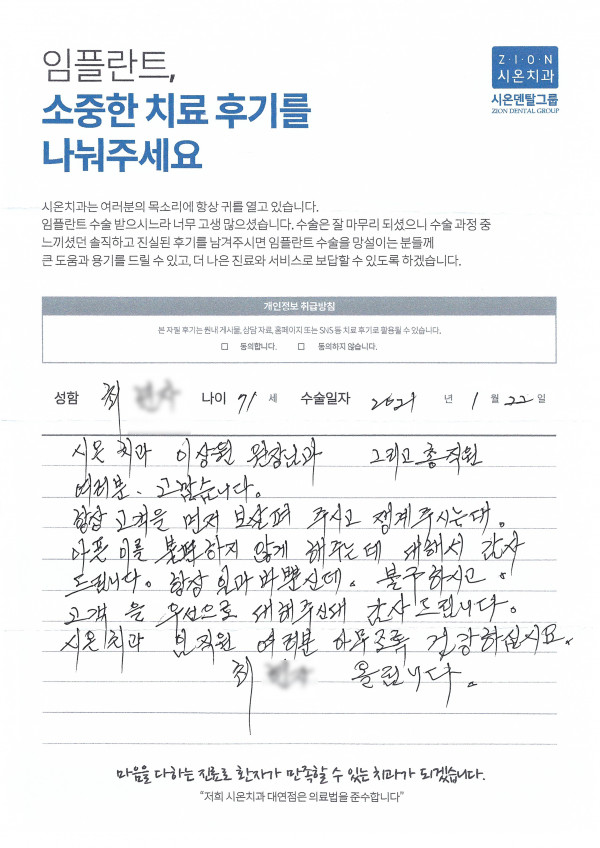 임플란트,
소중한 치료 후기를
나눠주세요
Z·I·O·N
시온치과
시온덴탈그룹
ZION DENTAL GROUP
시온치과는 여러분의 목소리에 항상 귀를 열고 있습니다.
임플란트 수술 받으시느라 너무 고생 많으셨습니다. 수술은 잘 마무리 되셨으니 수술 과정 중
느끼셨던 솔직하고 진실된 후기를 남겨주시면 임플란트 수술을 망설이는 분들께
큰 도움과 용기를 드릴 수 있고, 더 나은 진료와 서비스로 보답할 수 있도록 하겠습니다.
개인정보 취급방침
본 자필 후기는 원내 게시물, 상담 자료, 홈페이지 또는 SNS 등 치료 후기로 활용될 수 있습니다.
☐ 동의합니다. ☐ 동의하지 않습니다.
성함 최 나이 71 세 수술일자 2021 년 1 월 22 일
시온 치과 이상원 원장님과 그리고 총 직원
여러분. 고맙습니다.
항상 고객을 먼저 보살펴 주시고 챙겨주시는데.
아픈 이를 불편하지 않게 해주는데 대해서 감사
드립니다. 항상 일과 바쁘신데. 불구하시고.
고객을 우선으로 대해주신데 감사드립니다.
시온치과 임직원 여러분 아무쪼록 건강하십시요.
최 올립니다.
마음을 다하는 진료로 환자가 만족할 수 있는 치과가 되겠습니다.
"저희 시온치과 대연점은 의료법을 준수합니다"